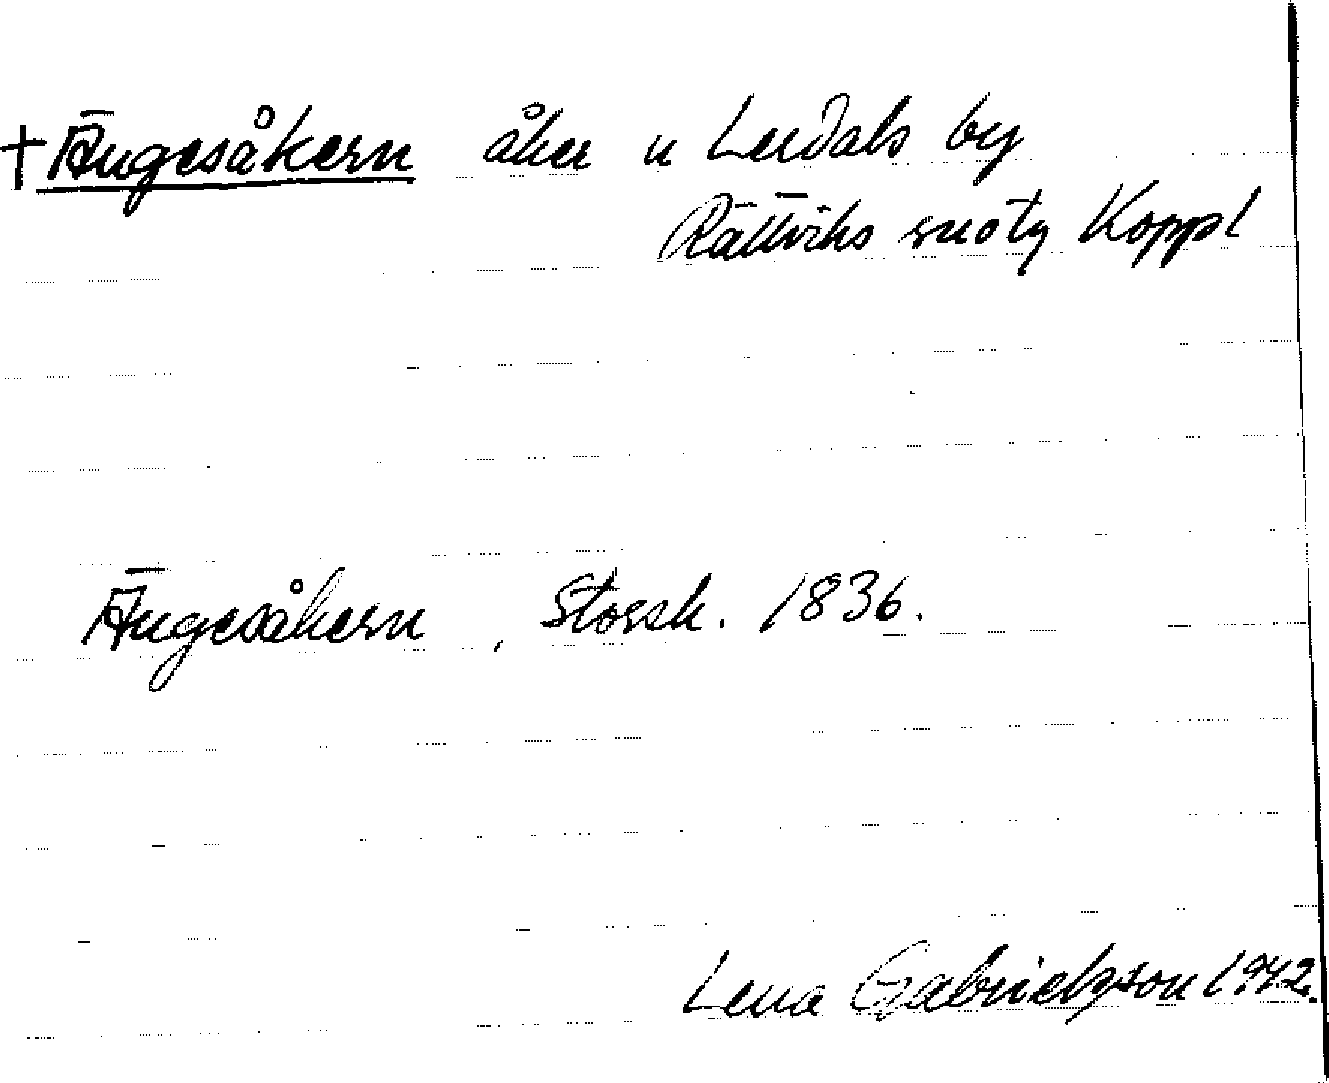 †Ängesåkern åker u Lerdals by
Rättviks sn o tg Koppl
Ängesåkern, Storsk. 1836.
Lena Gabrielsson 1942.